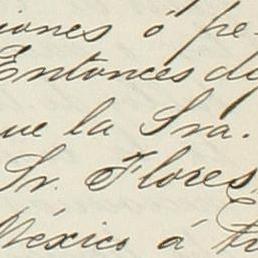 iones ó pe-
Entonces de
que la Sra.
Sr. Flores
México á